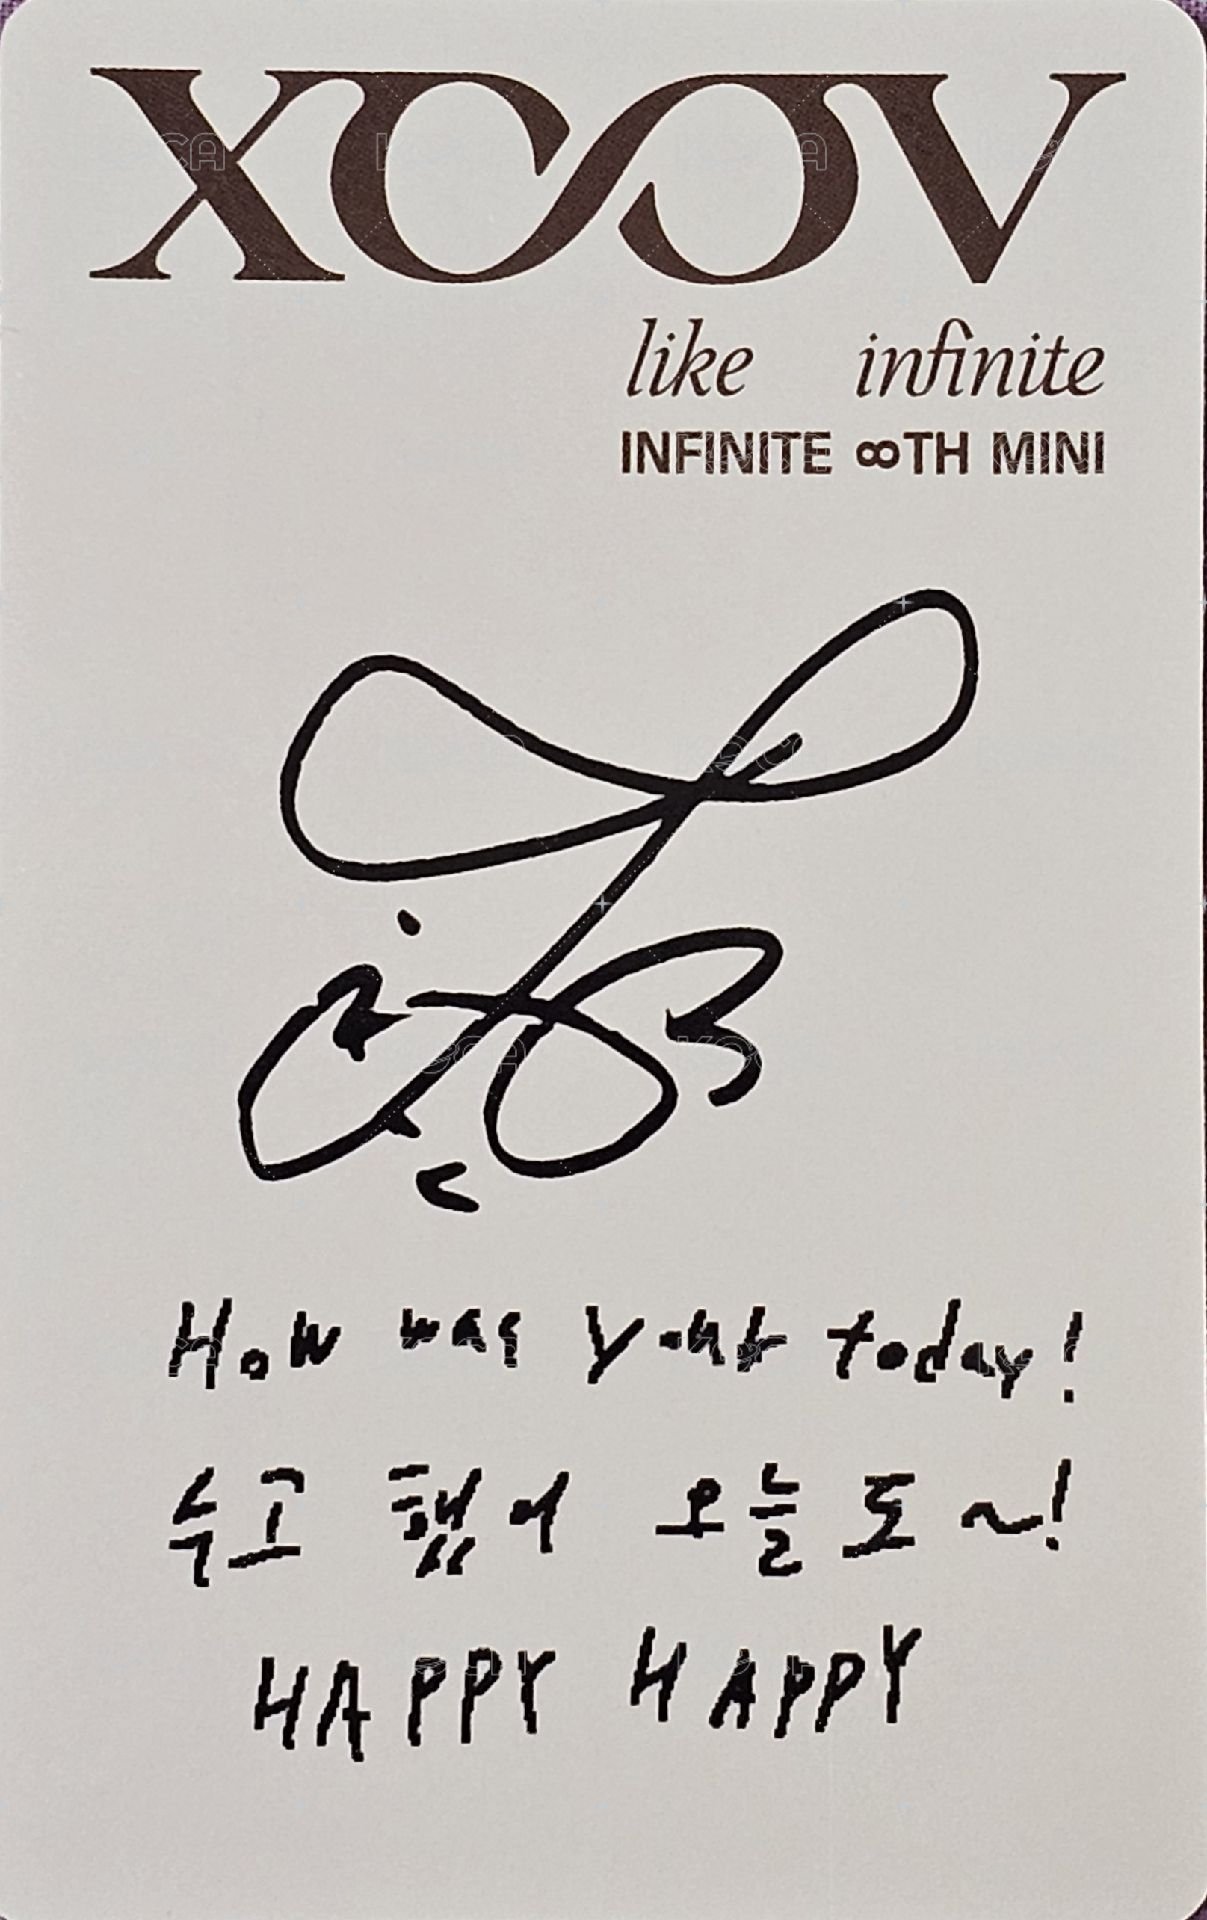 XOOV
like infinite
INFINITE ∞TH MINI
How was your today!
수고 했어 오늘 도~!
HAPPY HAPPY